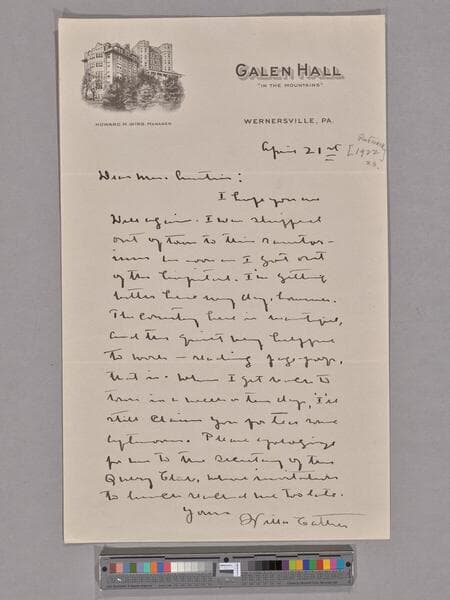 GALEN HALL
"IN THE MOUNTAINS"
HOWARD M. WING, MANAGER
WERNERSVILLE, PA.
April 21st
[1922]
Dear Mrs.
I hope you are
well again. I was shipped
out of town to this sanitor-
ium as soon as I got out
of the hospital. I'm getting
better here every day, however.
The country here is beautiful,
and the quiet very helpful
to work - reading page-proofs,
that is. When I get back to
town in a week or ten days, I'll
still claim you for tea some
afternoon. Please apologize
for me to the secretary of the
Query Club, whose invitation
to lunch reached me too late.
Yours
Willa Cather